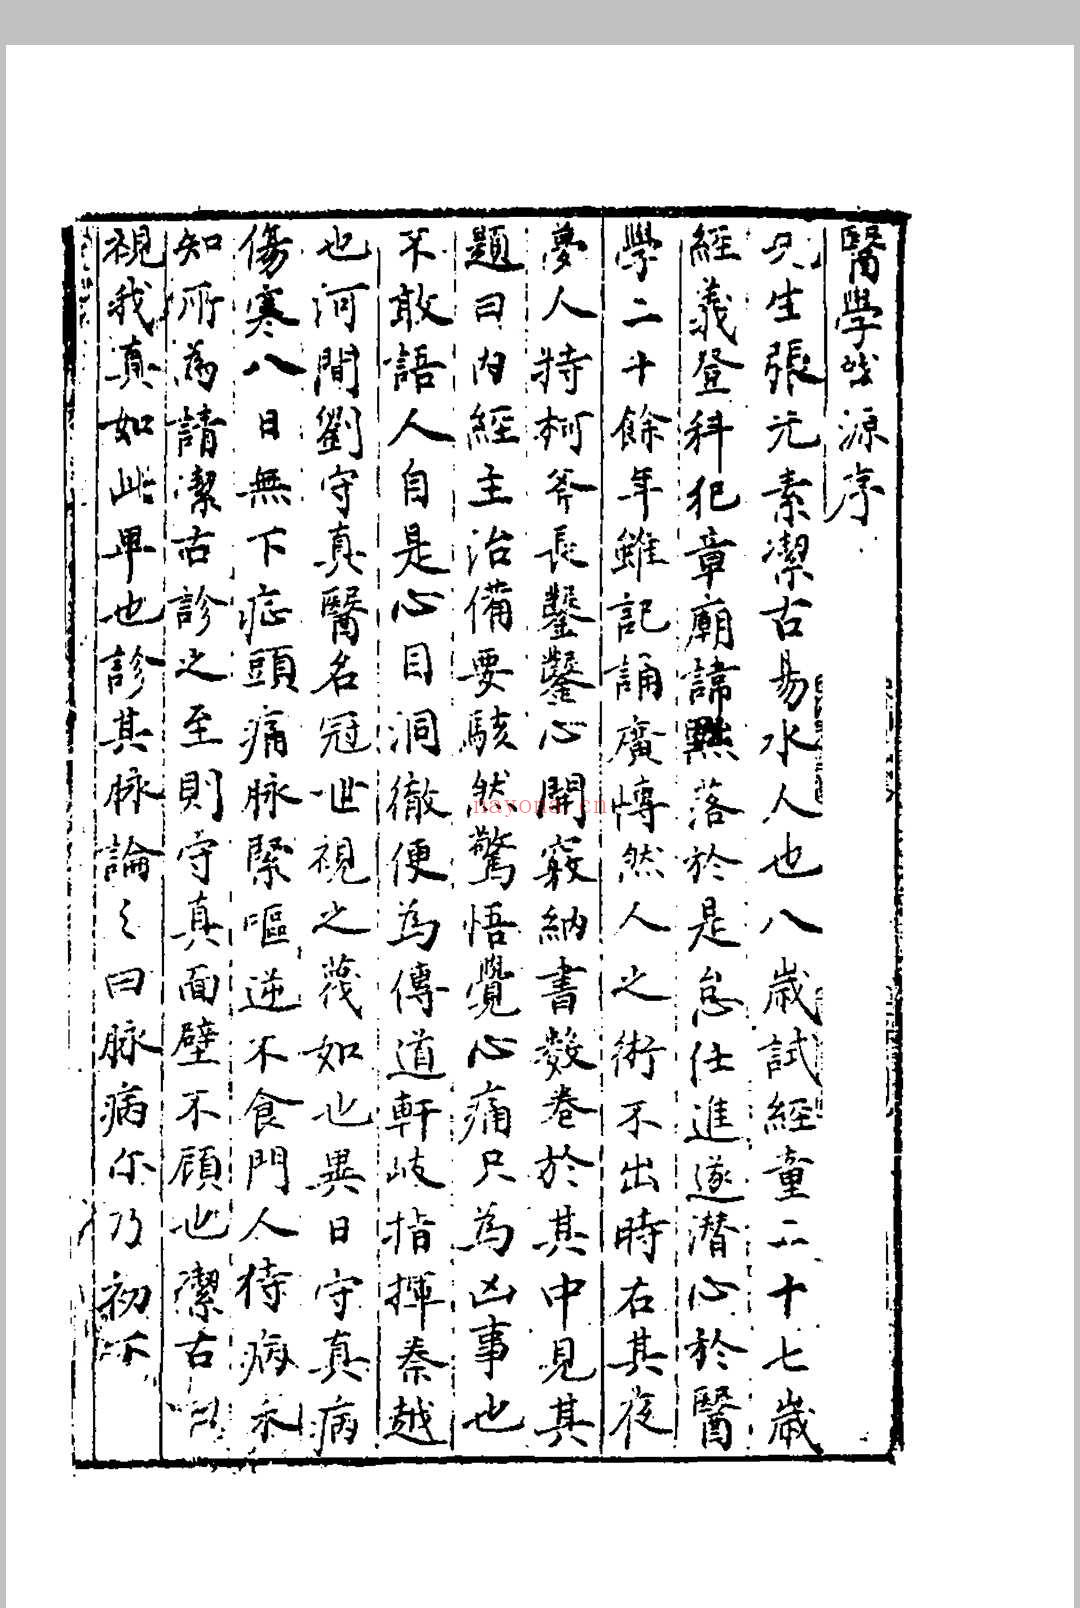 醫學啟源序
先生張元素潔古易水人也八歲試經童二十七歲
經義登科犯章廟諱黜落於是怠仕進遂潛心於醫
學二十餘年雖記誦廣博然人之術不出時右其夜
夢人持柯斧長鑿鑿心開竅納書數卷於其中見其
題曰內經主治備要駭然驚悟覺心痛只為凶事也
不敢語人自是心目洞徹便為傳道軒岐指揮秦越
也河間劉守真醫名冠世視之蔑如也異日守真病
傷寒八日無下症頭痛脉緊嘔逆不食門人侍病未
知所為請潔古診之至則守真面壁不顧也潔古
視我真如此卑也診其脉論之曰脉病尔乃初
nayona.cn